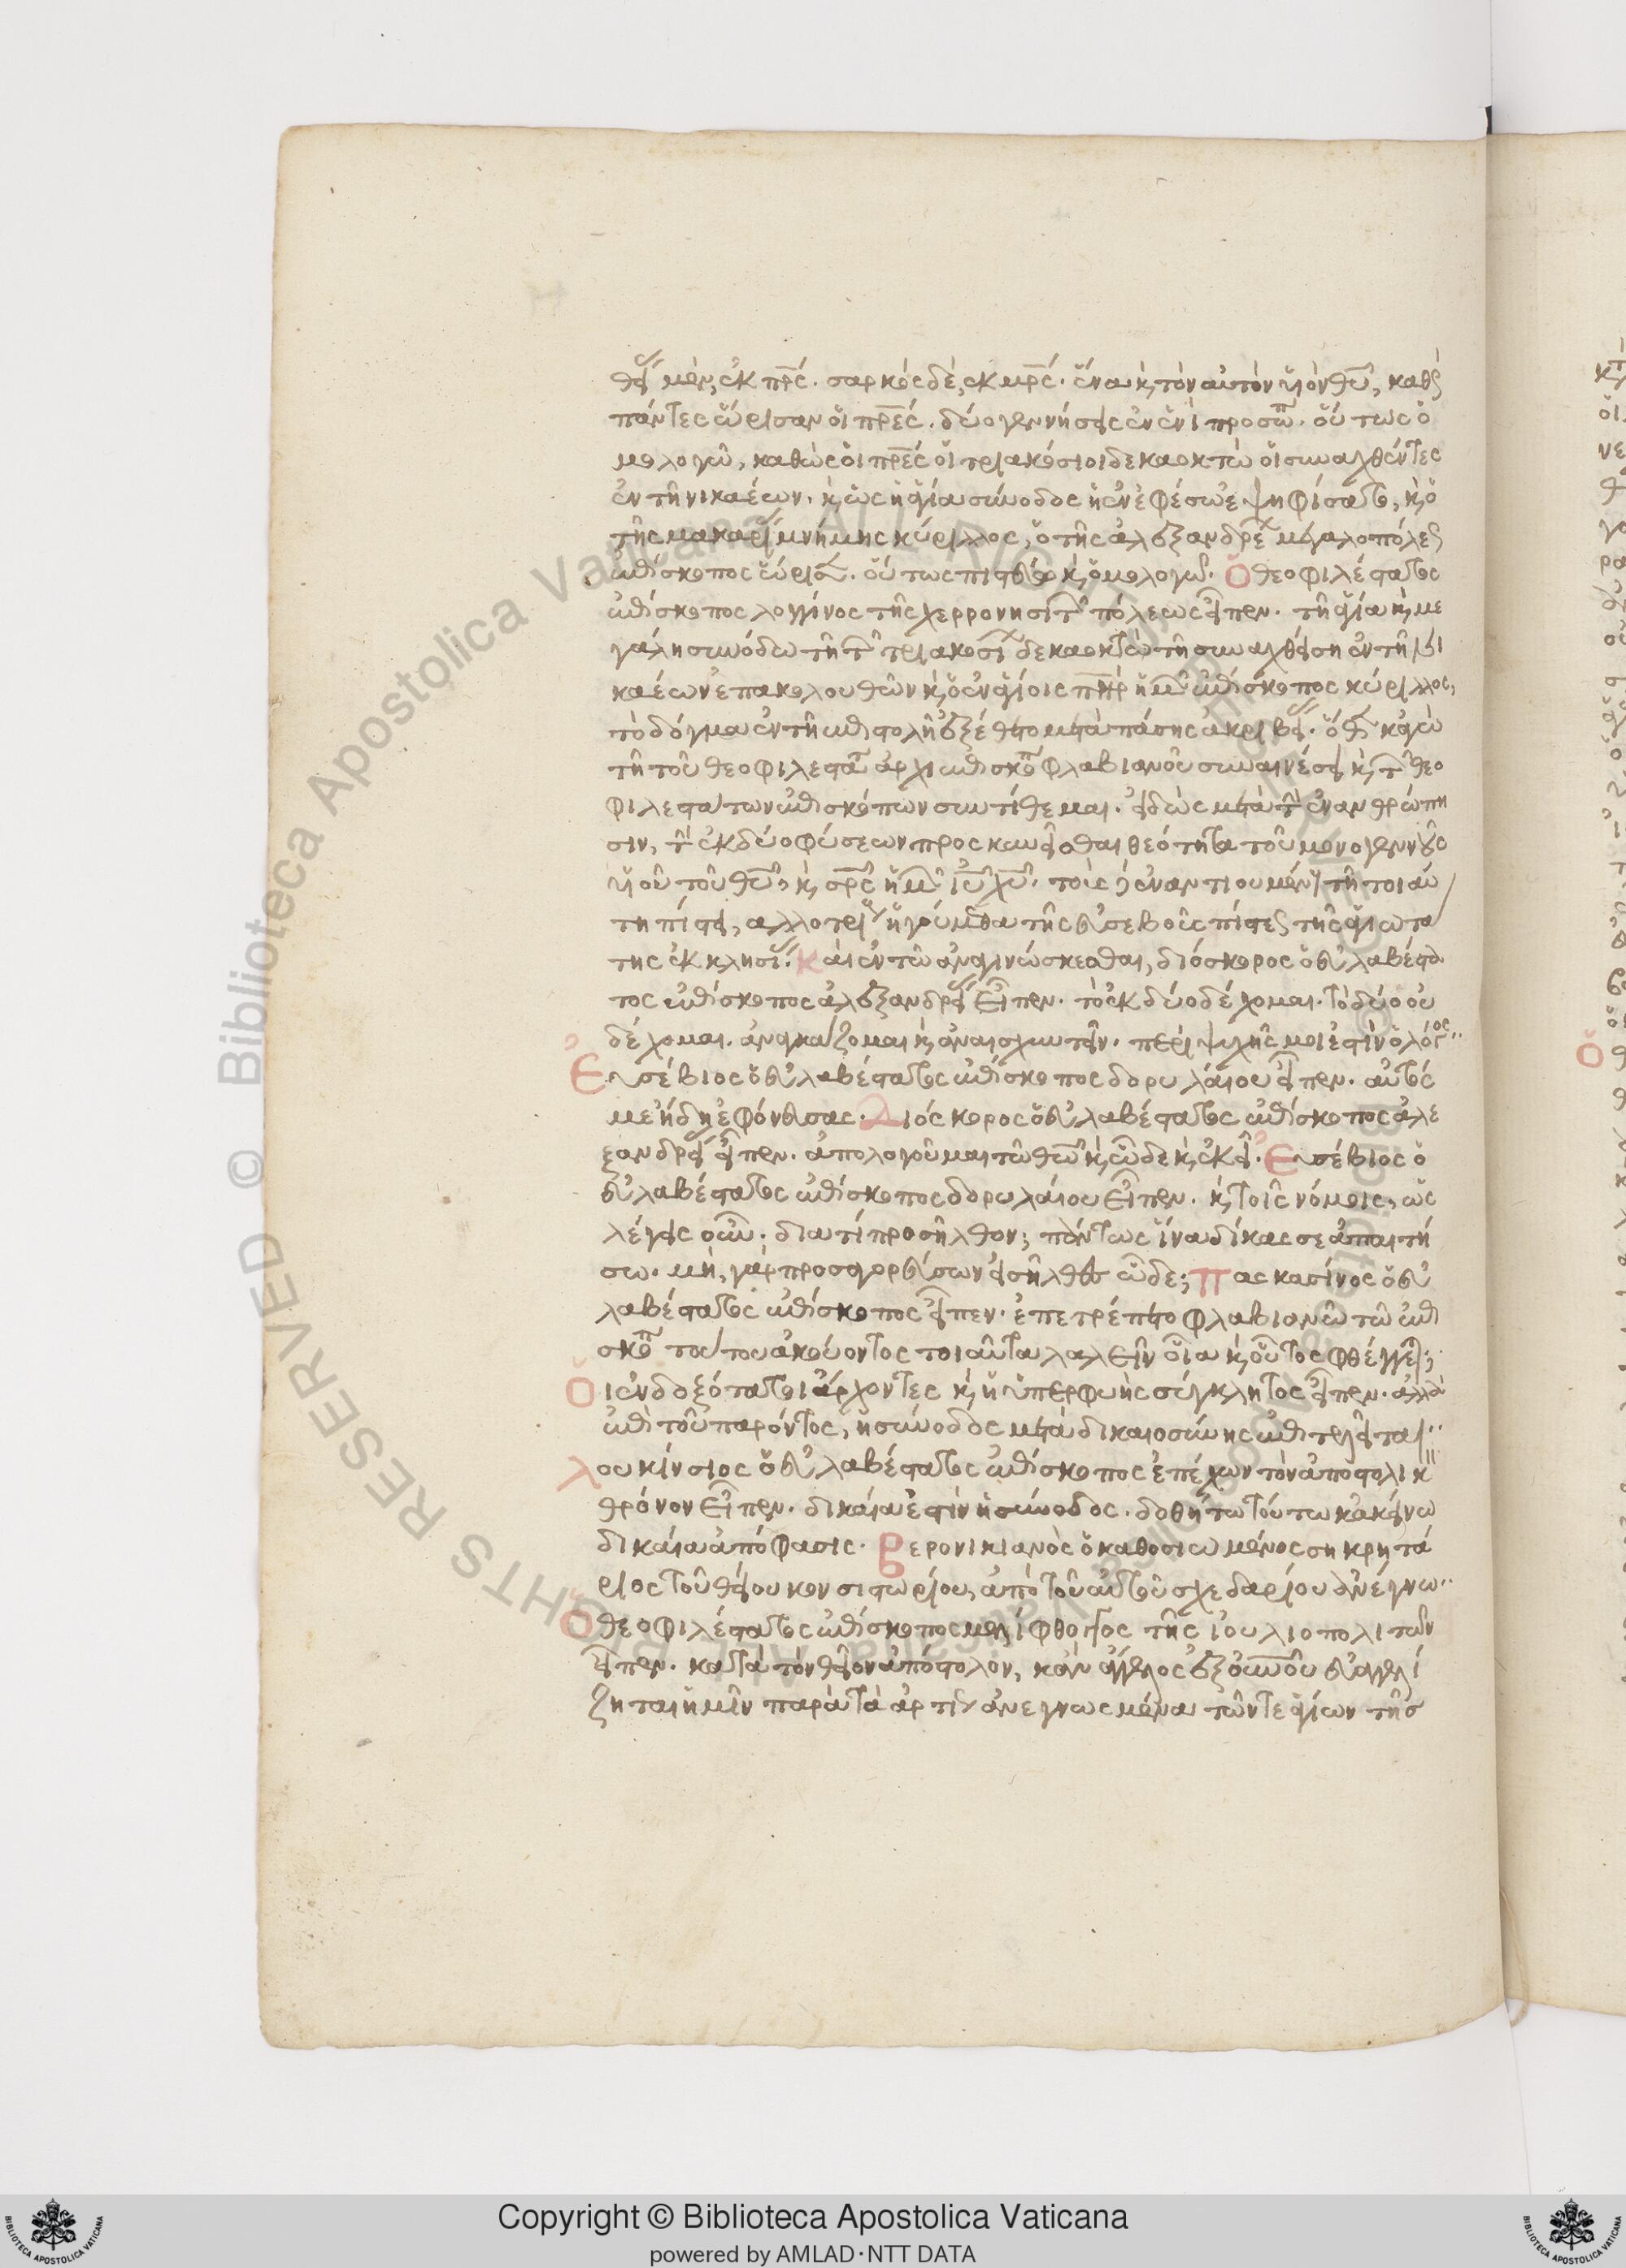 θεί μὲν, ἐκ πρς. σαρκὸς δὲ, ἐκ μρς. ἕνα κ τὸν αὐτὸν υἱὸν θυ, καθὸ
πάντες ὥρισαν οἱ πρες. δύο γεννήσεις ἐν ἑνὶ προσώπ. οὕτως ὁ
μολογῶ, καθὼς οἱ πρες οἱ τριακόσιοι δεκαοκτὼ οἱ συναχθέντες
ἐν τῆ νικαέων. κ ὡς ἡ ἁγία σύνοδος ἡ ἐν ἐφέσω ἐψηφίσατο, κ ὁ
τῆς μακαρί μνήμης κύριλλος, ὁ τῆς ἀλεξανδρέ μεγαλοπόλεως
ἐπίσκοπος ὥρισε. οὕτως πιστεύω κ ὁμολογῶ. Ὁ θεοφιλέστατος
ἐπίσκοπος λογγίνος τῆς χερρονησιτῶν πόλεως εἶπεν. τῆ ἁγία κ με
γάλη συνόδω τῆ τῶν τριακοσί δεκαοκτὼ τῆ συναχθείση ἐν τῆ νι
καέων ἐπακολουθῶν κ ὁ ἐν ἁγίοις πηρ ἡμῶν ἐπίσκοπος κύριλλος,
τὸ δόγμα ἐν τῆ ἐπιστολῆ ἐξέθετο μετὰ πάσης ἀκριβεί. ὅθεν κἀγὼ
τῆ τοῦ θεοφιλεστάτ ἀρχιεπισκόπ φλαβιανοῦ συναινέσει κ τῶν θεο
φιλεστάτων ἐπισκόπων συντίθεμαι. εἰδὼς μετὰ τὴν ἐνανθρώπη
σιν, τὴν ἐκ δύο φύσεων προσκυνεῖσθαι θεότητα τοῦ μονογενοῦς
υἱοῦ τοῦ θυ, κ σρς ἡμῶν ιυ χυ. τοὺς δὲ ἐναντιουμένους τῆ τοιαύ
τη πίστει, αλλοτρίους ἡγούμεθα τῆς εὐσεβοῦς πίστεως τῆς ἁγιωτά
της ἐκκλησί. Καὶ ἐν τῶ ἀναγινώσκεσθαι, διόσκορος ὁ εὐλαβέστα
τος ἐπίσκοπος ἀλεξανδρεί εἶπεν. τὸ ἐκ δύο δέχομαι. τὸ δύο οὐ
δέχομαι. ἀναγκάζομαι κ ἀναισχυντεῖν. περὶ ψυχῆς μοι ἐστὶν ὁ λόγος
Εὐσέβιος ὁ εὐλαβέστατος ἐπίσκοπος δορυλάιου εἶπεν. αὐτός
με ἤδη ἐφόνευσας. Διόσκορος ὁ εὐλαβέστατος ἐπίσκοπος ἀλε
ξανδρεί εἶπεν. ἀπολογοῦμαι τῶ θω κ ὧδε κ ἐκεῖ. Εὐσέβιος ὁ
εὐλαβέστατος ἐπίσκοπος δορυλάιου εἶπεν. κ τοῖς νόμοις, ὡς
λέγεις οὖν. διατί προσῆλθον; πάντως ἵνα δίκας σε ἀπαιτή
σω. μὴ, γὰρ προσαγορεύσων εἰσῆλθον ὧδε; Πασκασίνος ὁ εὐ
λαβέστατος ἐπίσκοπος εἶπεν. ἐπετρέπετο φλαβιανῶ τῶ ἐπι
σκόπ τούτου ἀκούοντος τοιαῦτα λαλεῖν οἷα κ οὗτος φθέγγεται;
Οἱ ἐνδοξότατοι ἄρχοντες κ ἡ ὑπερφυὴς σύγκλητος εἶπεν. ἀλλὰ
ἐπὶ τοῦ παρόντος, ἡ σύνοδος μετὰ δικαιοσύνης ἐπιτελεῖται
Λουκίνσιος ὁ εὐλαβέστατος ἐπίσκοπος ἐπέχων τὸν ἀποστολικ
θρόνον εἶπεν. δικαία ἐστὶν ἡ σύνοδος. δοθήτω τούτω κἀκείνω
δικαία ἀπόφασις. Βερονικιανὸς ὁ καθοσιωμένος σηκρητά
ριος τοῦ θείου κονσιστωρίου, ἀπὸ τοῦ αὐτοῦ σχεδαρίου ἀνέγνω
Ὁ θεοφιλέστατος ἐπίσκοπος μελίφθογγος τῆς ἰουλιοπολιτῶν
εἶπεν. κατὰ τὸν θεῖον ἀπόστολον, κἂν ἄγγελος ἐξ οὐνοῦ εὐαγγελί
ζηται ἡμῖν παρὰ τὰ ἀρτίως ἀνεγνωσμένα τῶν τε ἁγίων τῆς
© Biblioteca Apostolica Vaticana
ALL RIGHTS RESERVED
Copyright © Biblioteca Apostolica Vaticana
powered by AMLAD·NTT DATA